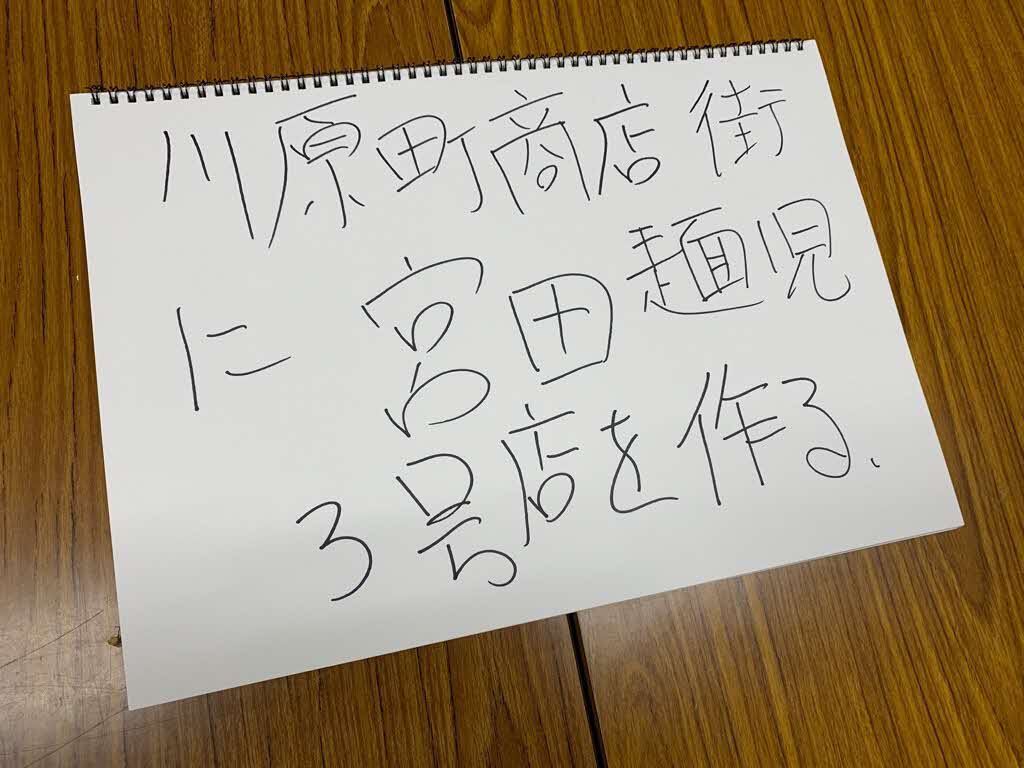 川原町商店街
に宮田麺児
3号店を作る、